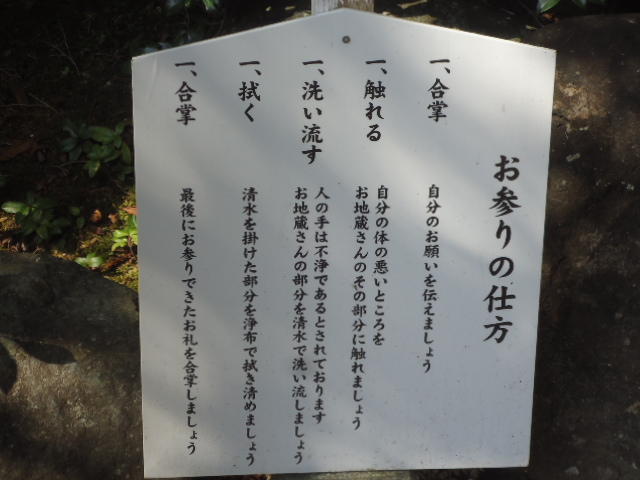 お参りの仕方
一、合掌
自分のお願いを伝えましょう
一、触れる
自分の体の悪いところを
お地蔵さんのその部分に触れましょう
一、洗い流す
人の手は不浄であるとされております
お地蔵さんの部分を清水で洗い流しましょう
一、拭く
清水を掛けた部分を浄布で拭き清めましょう
一、合掌
最後にお参りできたお礼を合掌しましょう